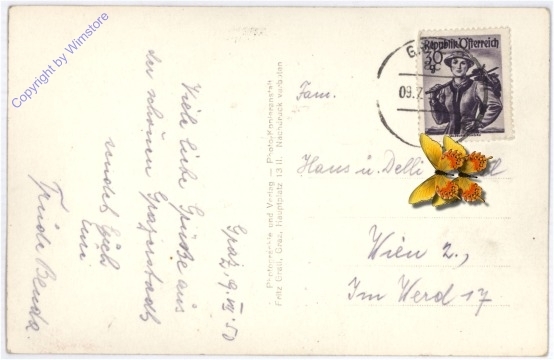 Copyright by Wimstore
Graz, 9. VII. 50
Viele liebe Grüße aus
der schönen Grazerstadt
sendet Euch
Eure
Trude Benda.
Photographie und Verlag — Photo-Kunstanstalt
Fritz Gratl, Graz, Hauptplatz 13 II. Nachdruck verboten
Republik Österreich
30
g
G
09.7
Fam.
Haus u. Delli
Wien 2.,
Im Werd 17